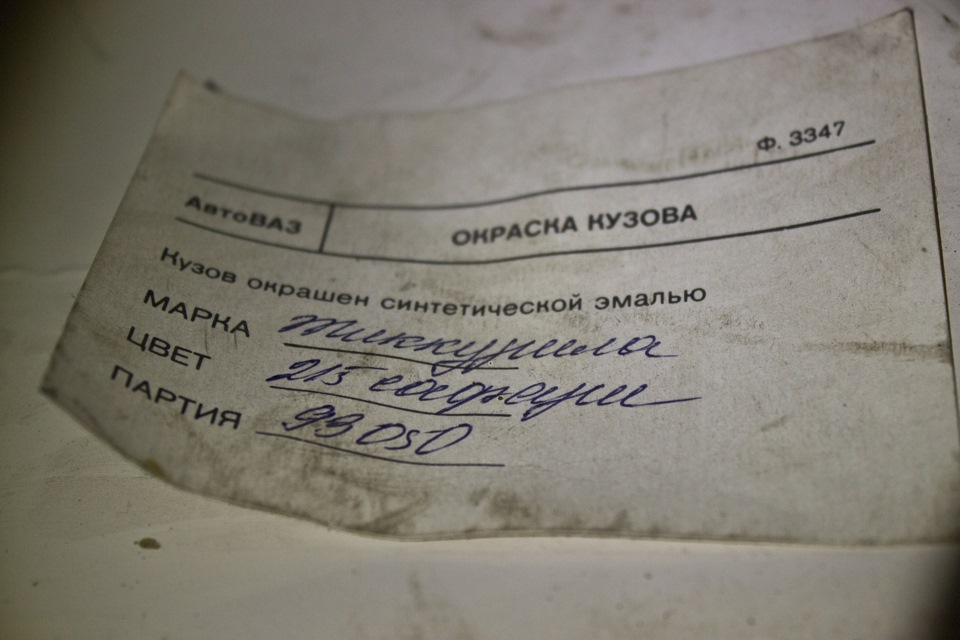 Ф. 3347
АвтоВАЗ ОКРАСКА КУЗОВА
Кузов окрашен синтетической эмалью
МАРКА Тиккурила
ЦВЕТ 215 сафари
ПАРТИЯ 93 050